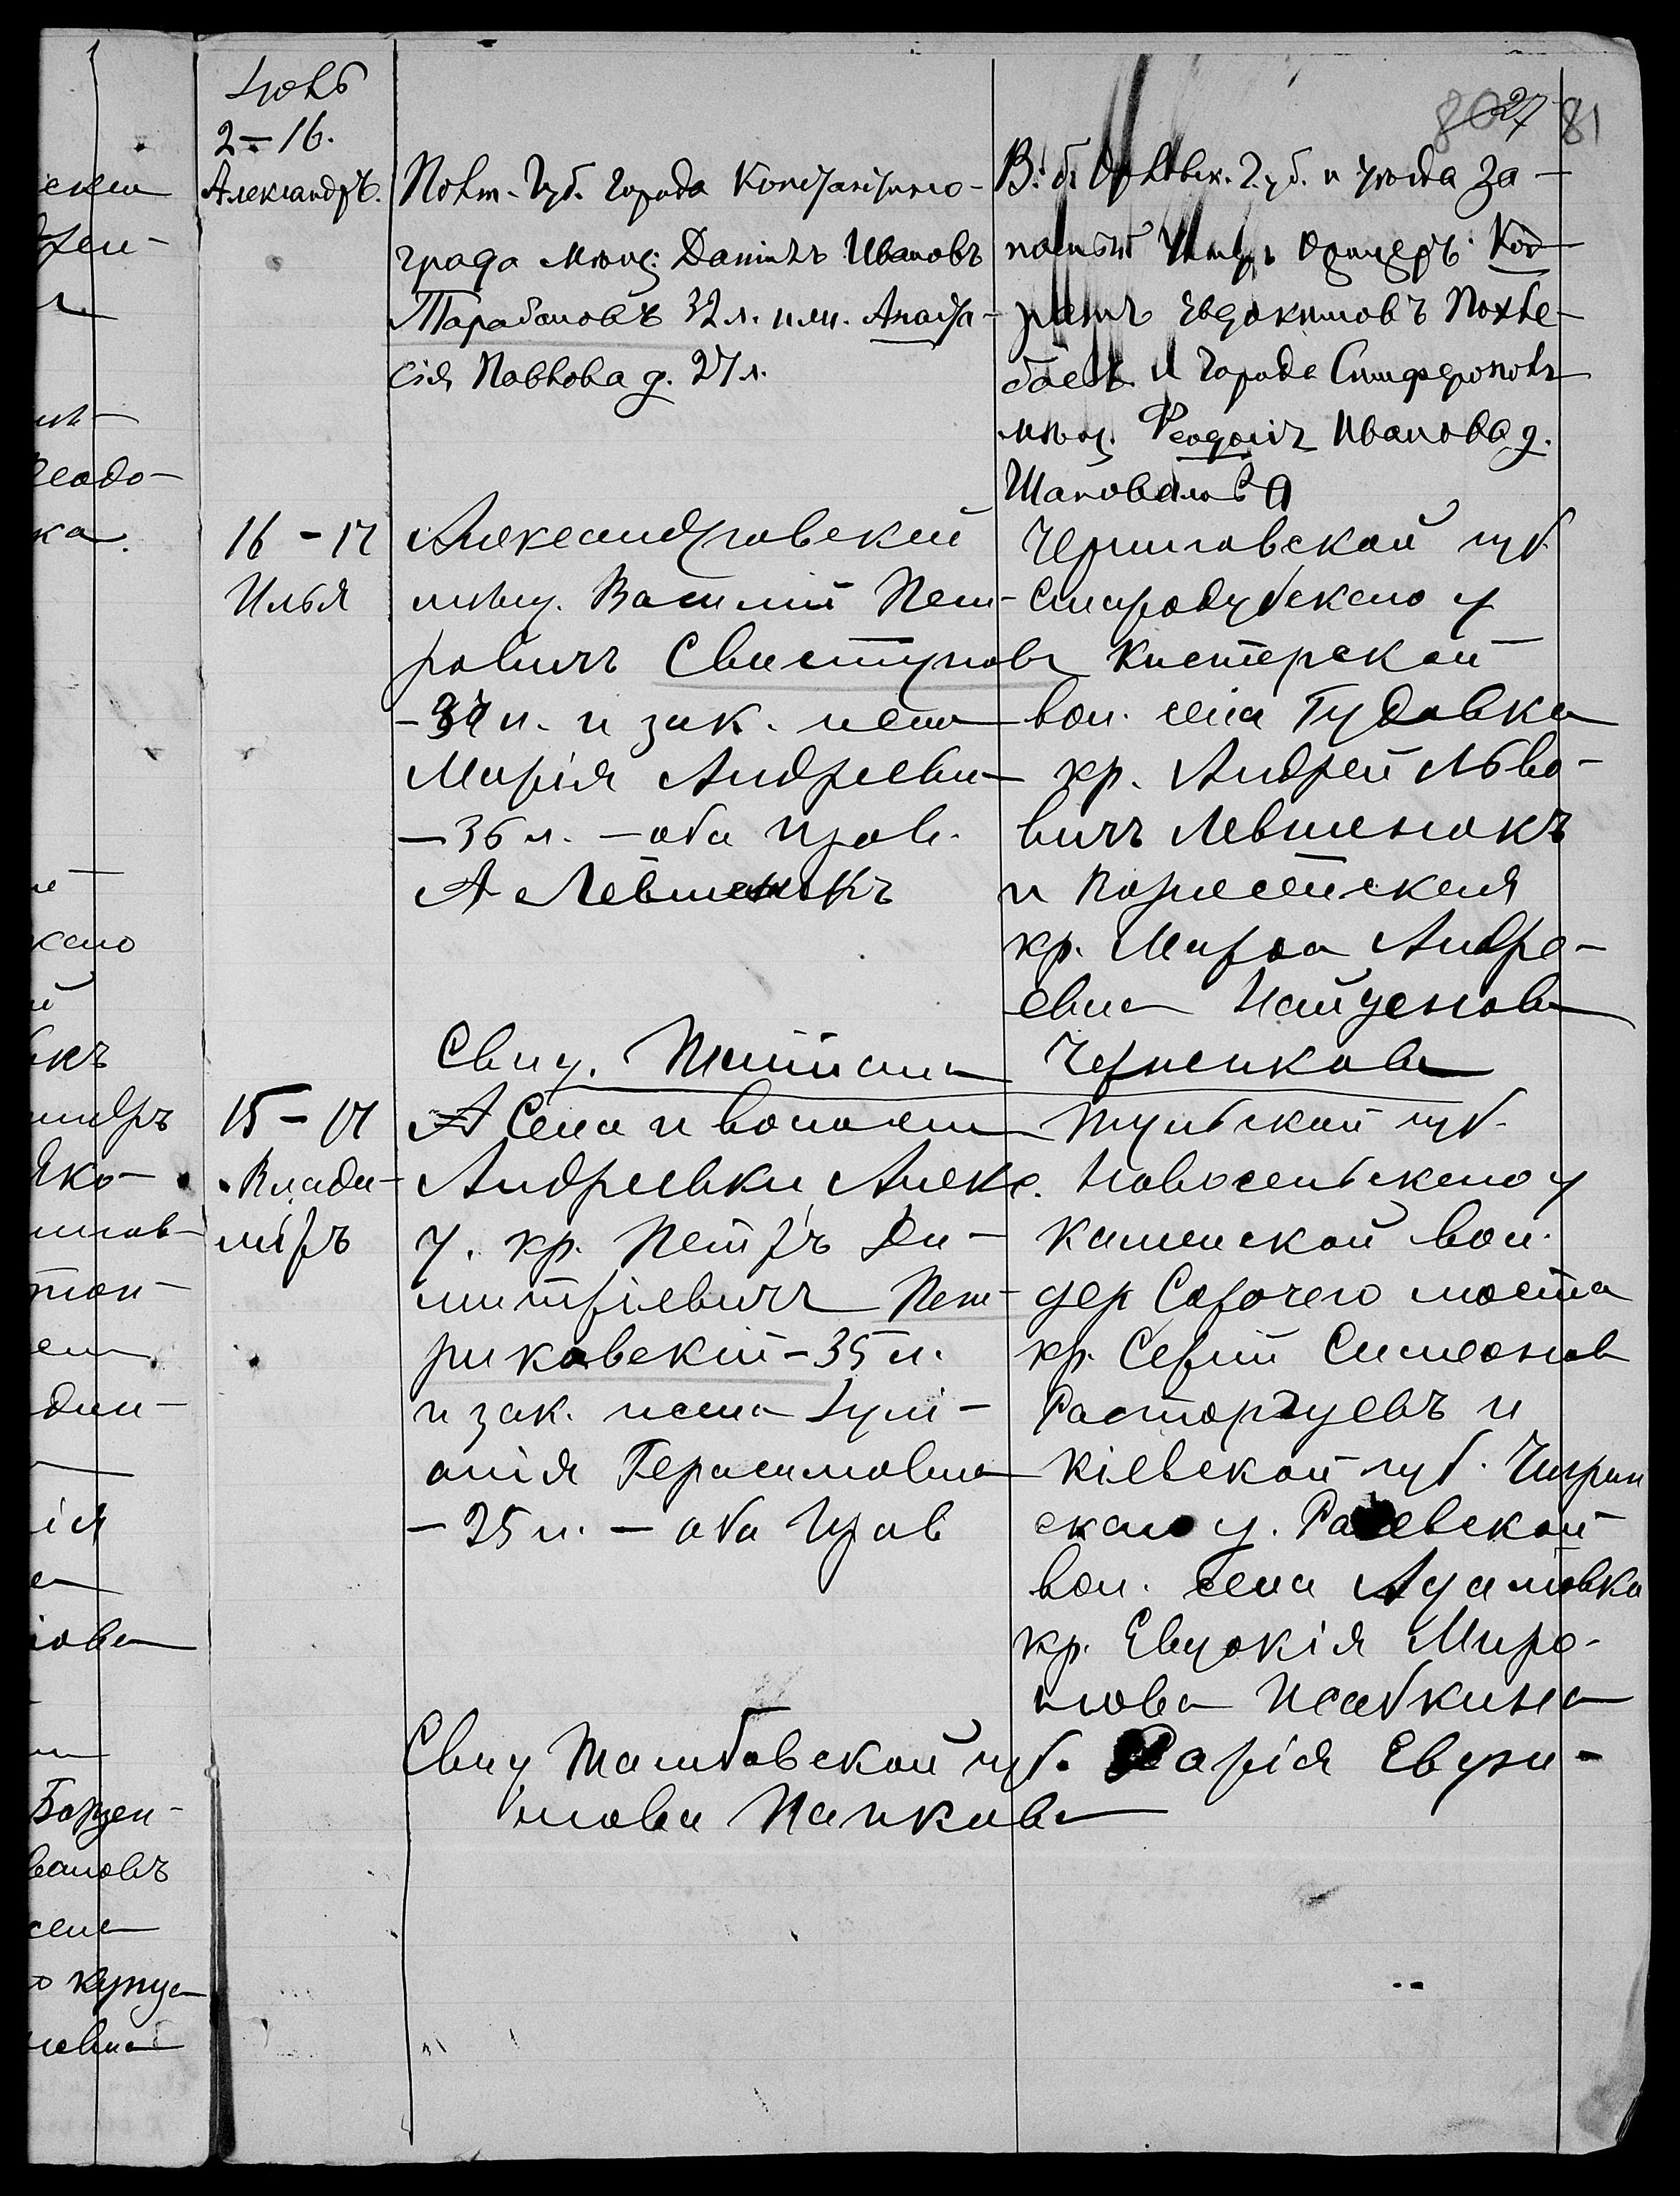 27
80 81
Іюль
2–16.
Александръ.
Полт. Губ. города Константино-
града мѣщ: Даніилъ Ивановъ
Тарабановъ 32 л. и мн. Анаста-
сія Павлова д. 27 л.
Орловск. Губ. и уѣзда За-
пасный Унтеръ Офицеръ Код-
ратъ Евдокимовъ
и города Симферополя
мѣщ. Феодосія Иванова д.
Шаповалова
16 – 17
Илья
Александровскій
мѣщ. Василій Пет-
ровичъ Свистуновъ
– 37 л. и зак. жена
Марія Андреевна
– 36 л. – оба прав.
А Левшенюкъ
Черниговской губ.
Стародубскаго у
Кистерской
вол. села Гудовка
кр. Андрей Льво-
вичъ Левшенюкъ
и
кр. Марѳа Андре-
евна Найденова
Свид. Татіана Черненкова
15 – 17
Влади-
міръ
А Села и волости
Андреевки Алекс.
у. кр. Петръ Ди-
митріевичъ Пет-
риковскій – 35 л.
и зак. жена Іулі-
анія Герасимовна
– 25 л. – оба прав
Тульской губ.
Новосельскаго у
Каменской вол.
дер Сорочего моста
кр. Сергій Симеонов
Расторгуевъ и
Кіевской губ. Чигрин
скаго у.
вол. села Адамовка
кр. Евдокія Миро-
нова Жабкина
Свид Тамбовской губ. Дарія Евфи-
мова Папкова